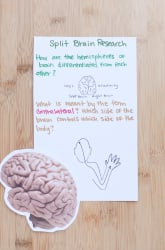 Split Brain Research
How are the hemispheres of
brain differentiated from each
other?
What is meant by the term
Contralateral? Which side of the
brain controls which side of the
body?